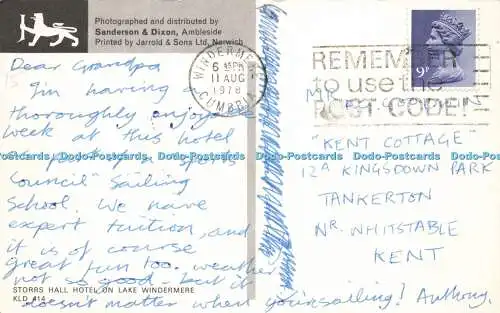 Photographed and distributed by
Sanderson & Dixon, Ambleside
Printed by Jarrold & Sons Ltd, Norwich
Dear Grandpa
I'm having
thoroughly enjoyable
week at this hotel
Council" Sailing
School. We have
expert tuition, and
it is of course
great fun too. weather
not so good - but it
doesn't matter when you're sailing! Anthony
STORRS HALL HOTEL ON LAKE WINDERMERE
KLD 414
WINDERMERE
6 PM
11 AUG
1978
CUMBRIA
REMEMBER
to use the
POST CODE!
9P
"KENT COTTAGE"
12A KINGSDOWN PARK
TANKERTON
NR. WHITSTABLE
KENT
Dodo-Postcards Dodo-Postcards Dodo-Postcards Dodo-Postcards Dodo-Postcards